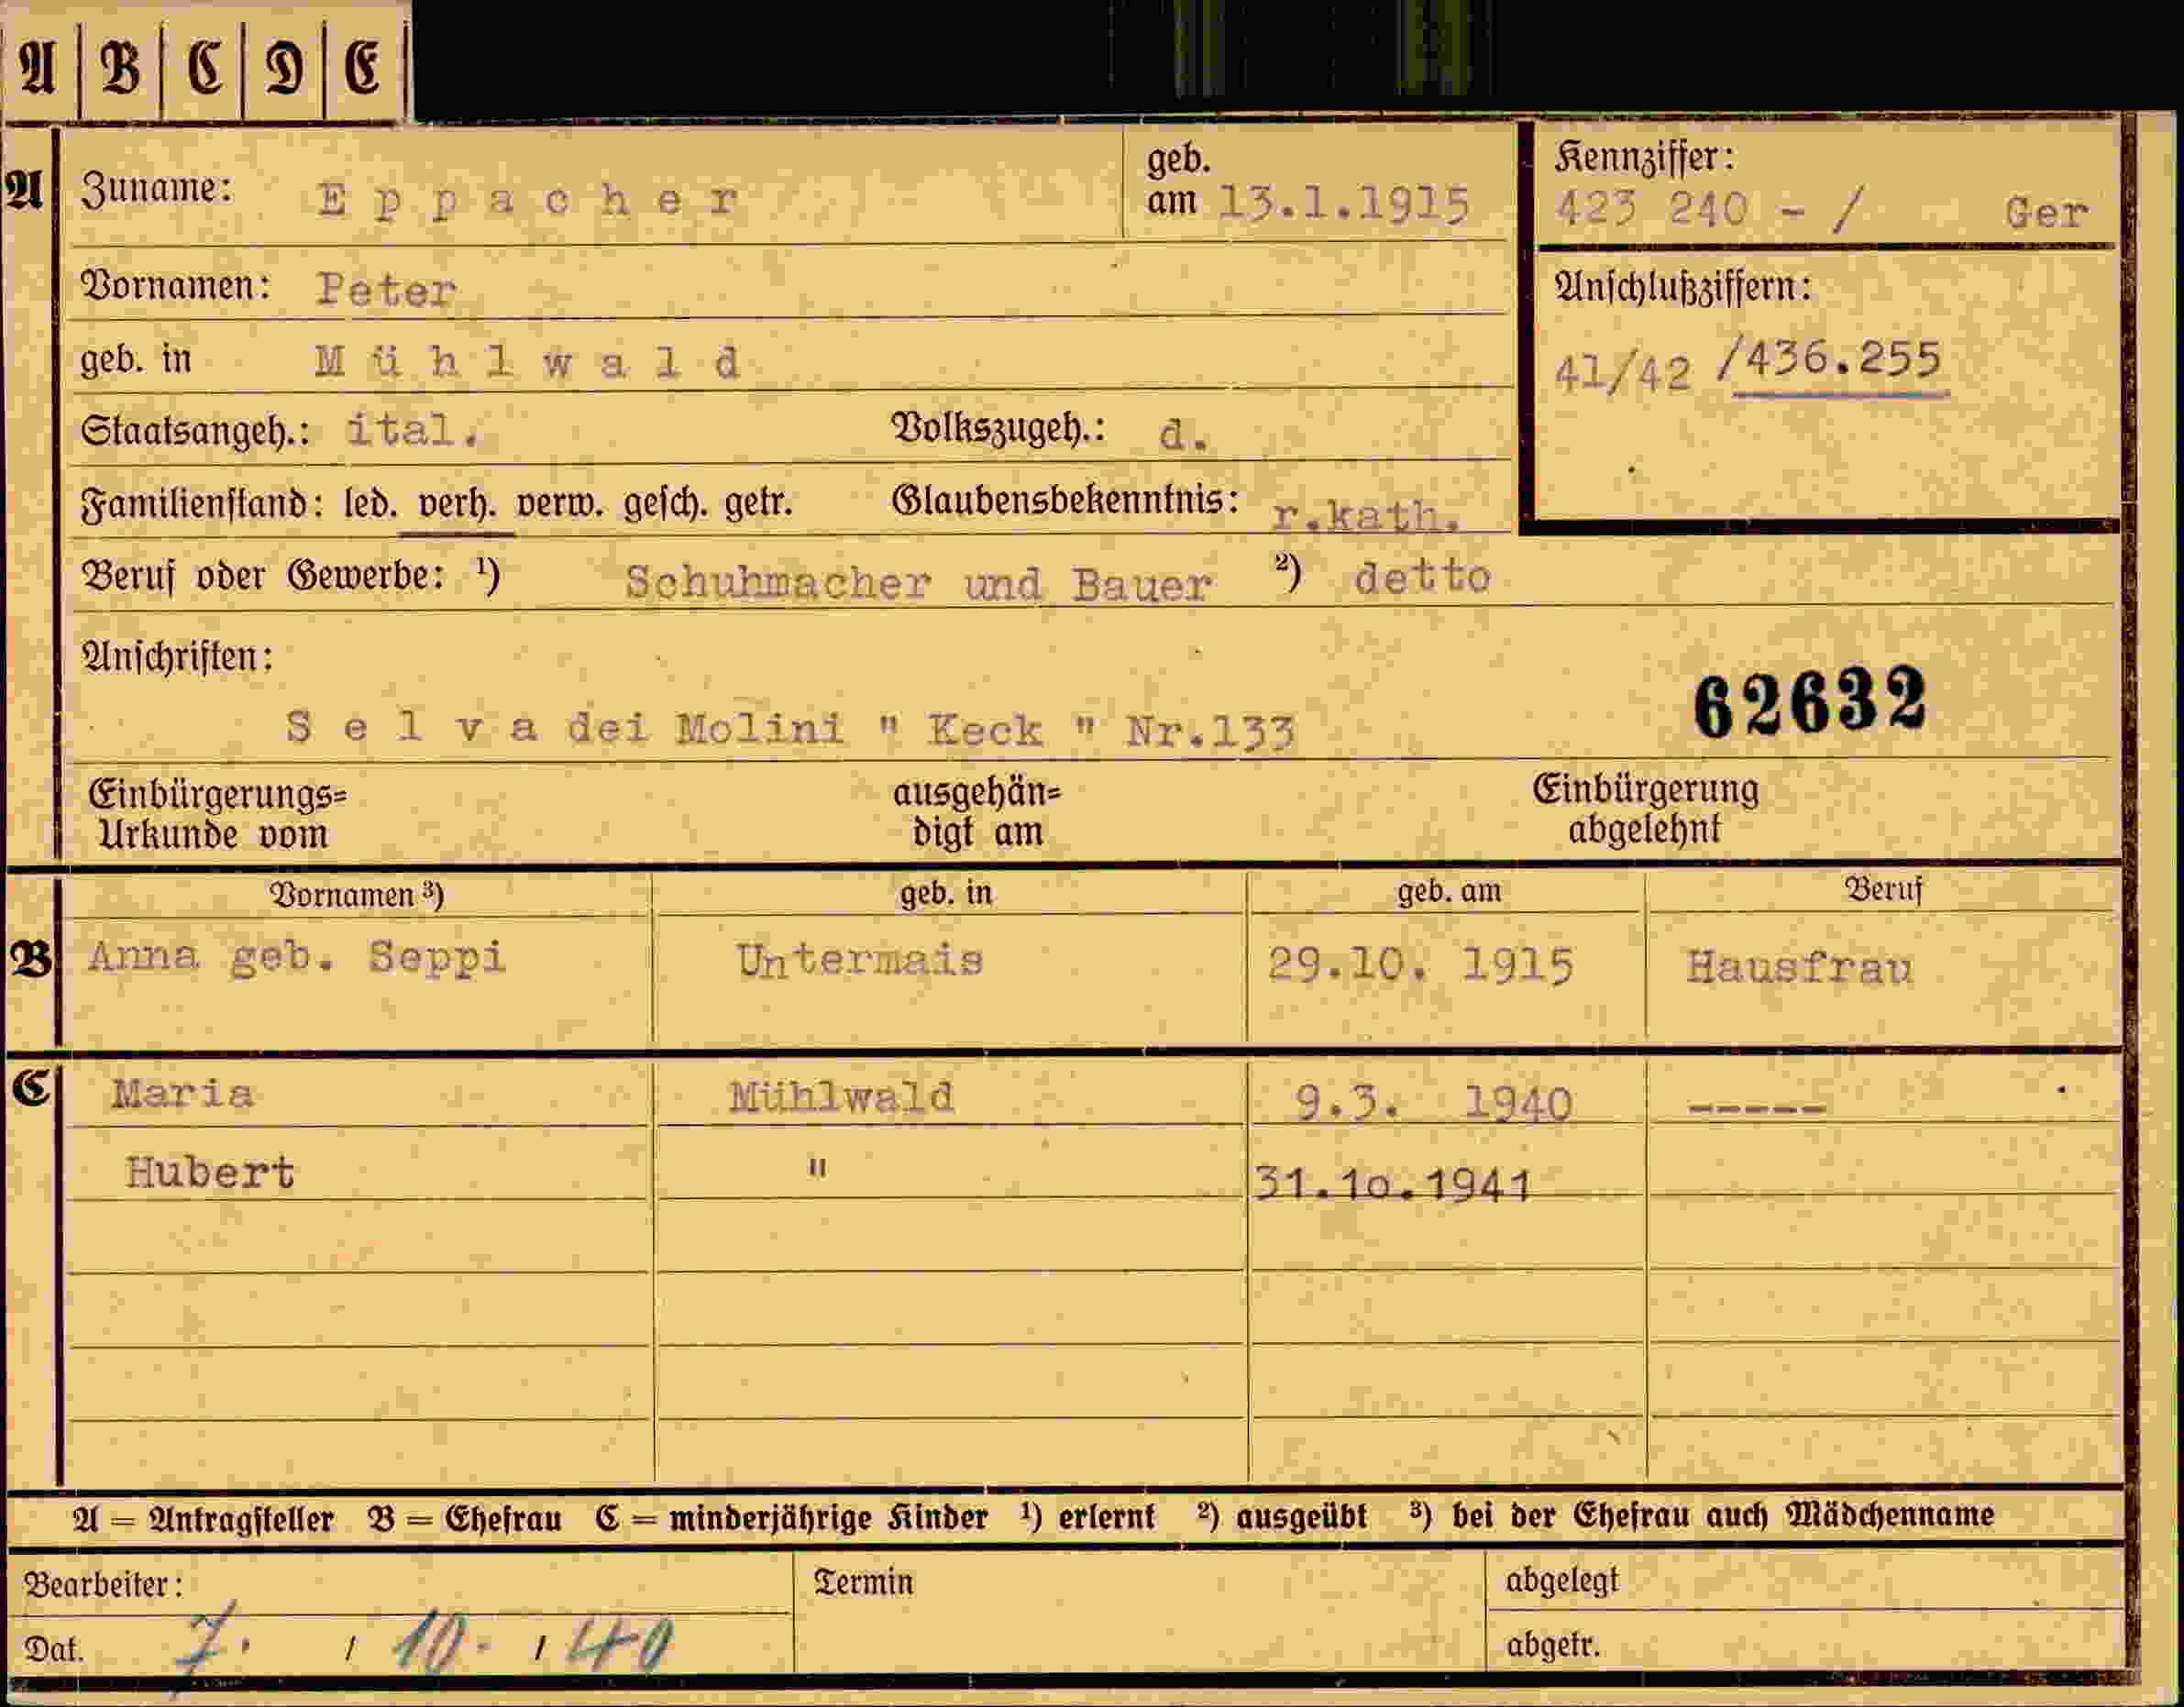 A B C D E
A Zuname: Eppacher geb. am 13.1.1915
Kennziffer:
423 240 - / Ger
Vornamen: Peter
Anschlußziffern:
geb. in Mühlwald
41/42 /436.255
Staatsangeh.: ital. Volkszugeh.: d.
Familienstand: led. verh. verw. gesch. getr. Glaubensbekenntnis: r.kath.
Beruf oder Gewerbe: ¹) Schuhmacher und Bauer ²) detto
Anschriften:
62632
Selva dei Molini " Keck " Nr.133
Einbürgerungs= ausgehän= Einbürgerung
Urkunde vom digt am abgelehnt
Vornamen ³) geb. in geb. am Beruf
B Anna geb. Seppi Untermais 29.10. 1915 Hausfrau
C Maria Mühlwald 9.3. 1940 -----
Hubert " 31.10.1941
A = Antragsteller B = Ehefrau C = minderjährige Kinder ¹) erlernt ²) ausgeübt ³) bei der Ehefrau auch Mädchenname
Bearbeiter: Termin abgelegt
Dat. 7. / 10. / 40 abgetr.